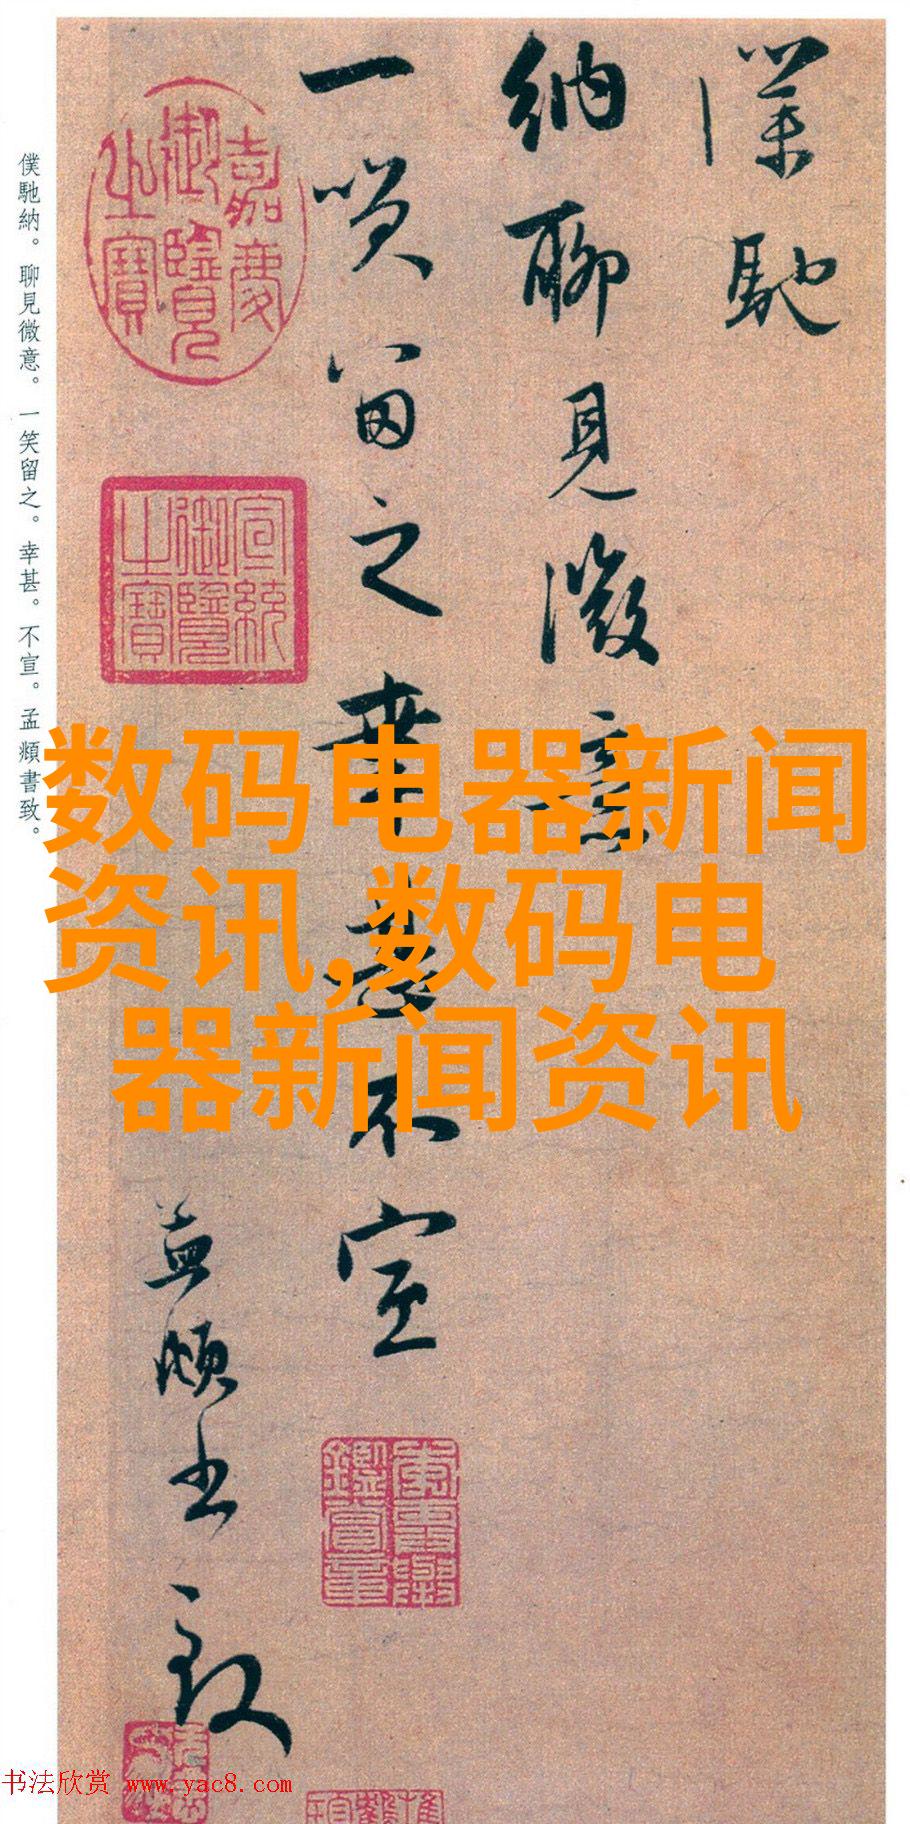 僕馳
納聊見微意
一笑留之幸甚不宣
孟頫書致
僕馳納。聊見微意。一笑留之。幸甚。不宣。孟頫書致。
嘉慶御覽之寶
宣統御覽之寶
数码电器新闻
资讯,数码电
器新闻资讯
书法欣赏 www.yac8.com